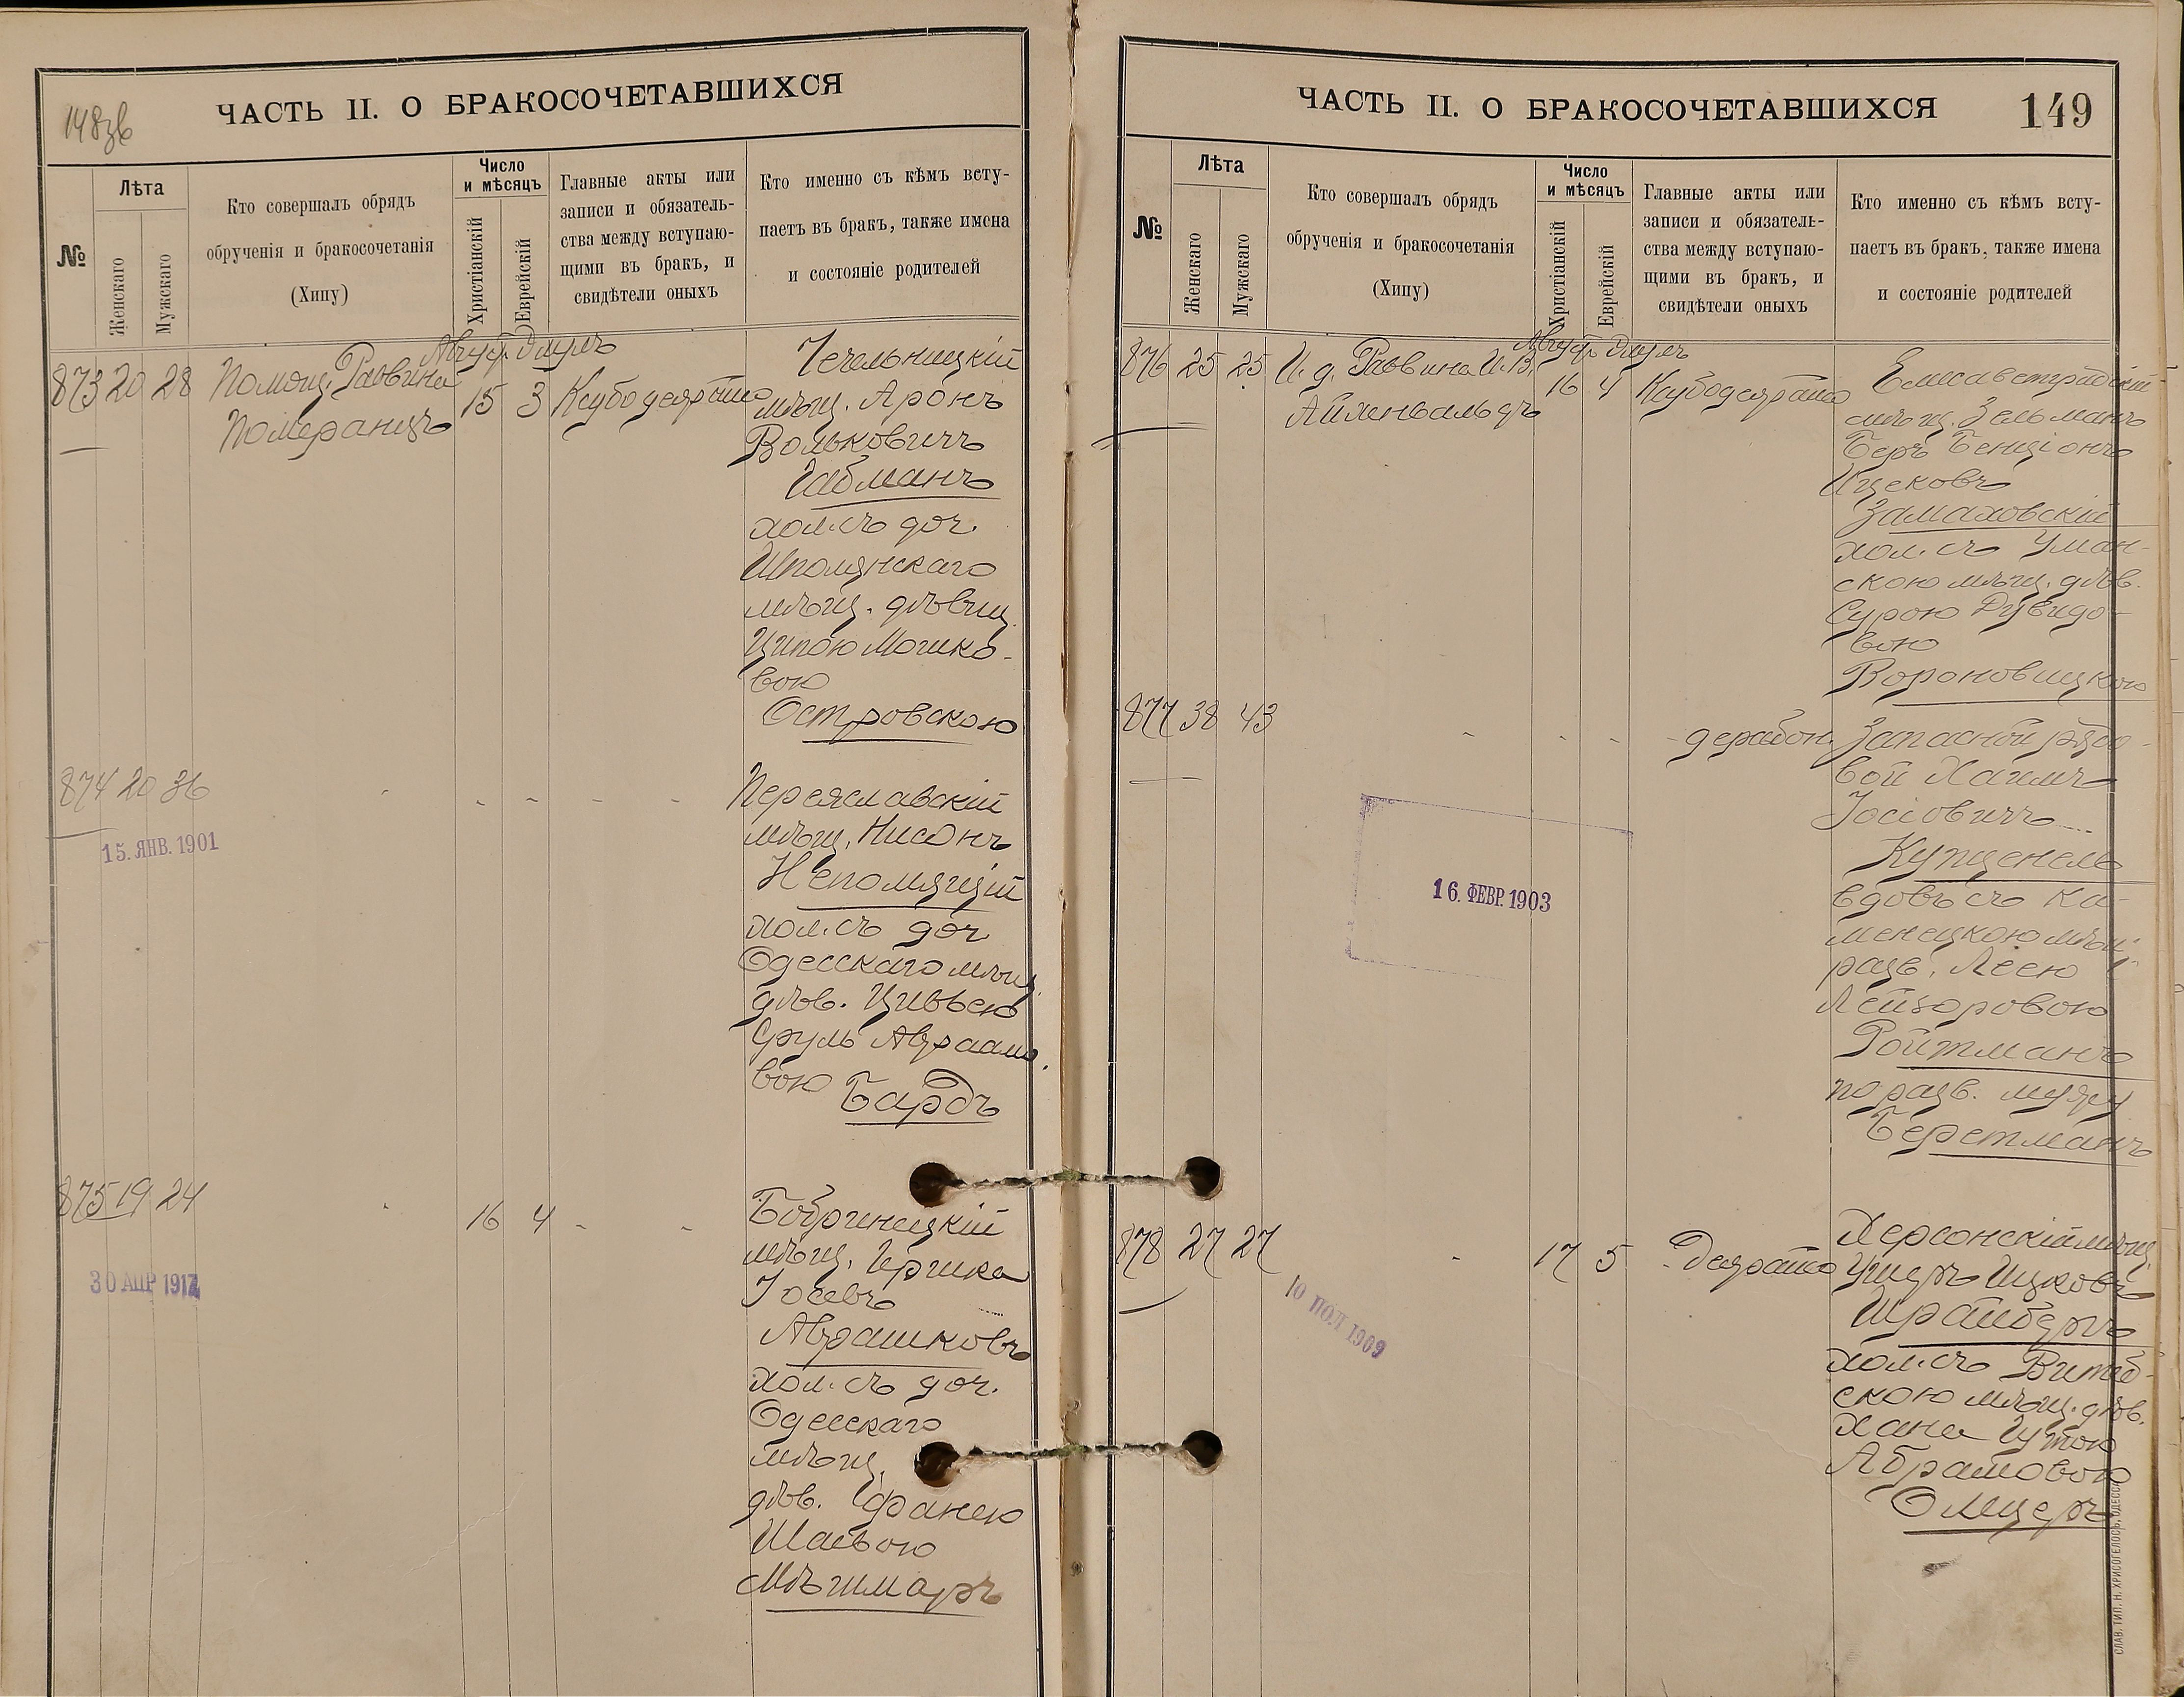 148зв
ЧАСТЬ II. О БРАКОСОЧЕТАВШИХСЯ
№
Лѣта
Женскаго
Мужскаго
Кто совершалъ обрядъ
обрученія и бракосочетанія
(Хипу)
Число
и мѣсяцъ
Христіанскій
Еврейскій
Главные акты или
записи и обязатель-
ства между вступаю-
щими въ бракъ, и
свидѣтели оныхъ
Кто именно съ кѣмъ всту-
паетъ въ бракъ, также имена
и состояніе родителей
Август Элулъ
873 20 28 Помощ. Раввина
Померанцъ
15 3 Ксубо дерайсо
Чечельницкій
мѣщ. Аронъ
Вольковичъ
Габманъ
хол. съ доч.
Шполянскаго
мѣщ. дѣвиц.
Ципою Мошко-
вою
Островскою
874 20 36 - - - - -
15. ЯНВ. 1901
Переяславскій
мѣщ. Нисонъ
Непомящій
хол. съ доч
Одесскаго мѣщ.
дѣв. Цивьею
Сруль Авраамо
вою Бардъ
875 19 24 - 16 4 - -
30 АПР 1912
Бобринецкій
мѣщ. Гершка
Іосевъ
Аврашковъ
хол. съ доч.
Одесскаго
мѣщ.
дѣв. Фанею
Шаевою
Мѣшмаръ
ЧАСТЬ II. О БРАКОСОЧЕТАВШИХСЯ 149
№
Лѣта
Женскаго
Мужскаго
Кто совершалъ обрядъ
обрученія и бракосочетанія
(Хипу)
Число
и мѣсяцъ
Христіанскій
Еврейскій
Главные акты или
записи и обязатель-
ства между вступаю-
щими въ бракъ, и
свидѣтели оныхъ
Кто именно съ кѣмъ всту-
паетъ въ бракъ, также имена
и состояніе родителей
Август Элулъ
876 25 25 И. д. Раввина И. В.
Айхенвальдъ
16 4 Ксубо дерайсо
Елисаветградскій
мѣщ. Зельманъ
Беръ Бенціонъ
Ицековъ
Замаховскій
хол. съ Уман-
скою мѣщ. дѣв.
Сурою Дувидо-
вою
Вороновицкою
877 38 43 - - - - дерабон.
16. ФЕВР. 1903
Запасной рядо-
вой Хаимъ
Іосіовичъ
Купценель
вдовъ съ Ка-
менецкою мѣщ.
разв. Леею
Лейзоровою
Ройтманъ
по разв. мужу
Беретманъ
878 27 27 - 17 5 - Дерайсо
10 ПОЛ 1909
Херсонскій мѣщ.
Ушеръ Ицковъ
Шрайберъ
хол. съ Витеб-
скою мѣщ. дѣв.
Хана Гутою
Абрамовою
Олицеръ
СЛАВ. ТИП. Н. ХРИСОГЕЛОСЪ, ОДЕССА